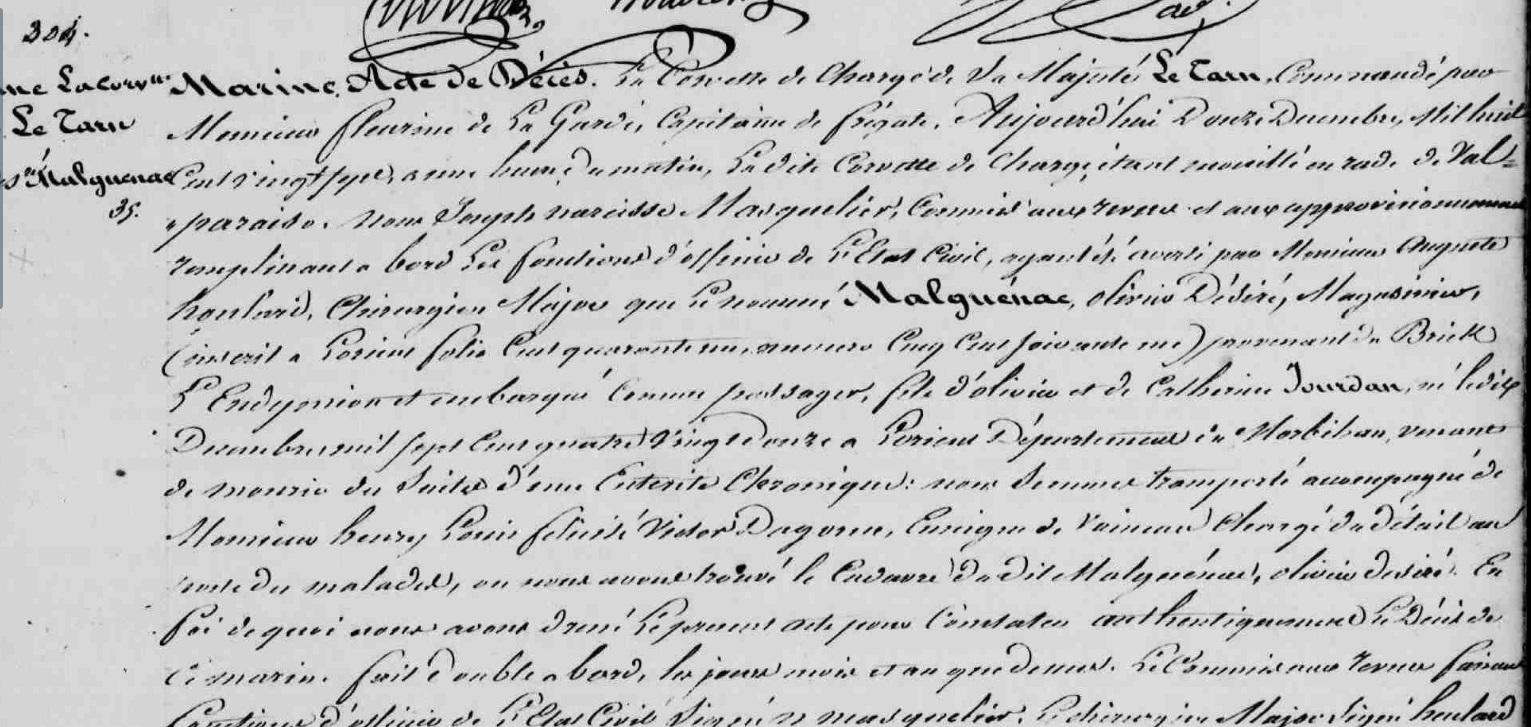 304.
ne La Corv.tte
Le Tarn
Malguénac
35.
Marine, Acte de Décès. La Corvette de Charge de Sa Majesté Le Tarn, Commandé par
Monsieur fleurine de La Garde, Capitaine de frégate. Aujourd'hui Douze Decembre, Mil huit
Cent vingt sept, a une heure du matin, La dite Corvette de Charge, étant mouillé en rade de Val=
paraiso. Nous Joseph narcisse Masquelier, Commis aux revues et aux approvisionnements
remplissant a bord Les fonctions d'officier de L'Etat Civil, ayant été averti par Monsieur Auguste
houlard, Chirurgien Major que Le nommé Malguénac, olivier Désiré, Magasinier,
(inscrit a Lorient folio Cent quarante un, numero Cinq Cent soixante un) provenant du Brick
L'Endymion et embarqué Comme passager, fils d'olivier et de Catherine Jourdan, né le dix
Decembre mil sept Cent quatre vingt douze a Lorient Département du Morbihan, venant
de mourir des suites d'une Enterite Chronique: nous sommes transporté accompagné de
Monsieur henry Louis félicité Victor Dagorne, Enseigne de Vaisseau Chargé du détail au
poste des malades, ou nous avons trouvé le Cadavre du dit Malguénac, olivier desiré. En
foi de quoi nous avons dressé Le present acte pour Constater authentiquement Le Décès de
Ce marin. fait double a bord, les jour mois et an que dessus. Le Commis aux revues faisant
fonctions d'officier de L'Etat Civil Signé N Masquelier. Le chirurgien Major Signé houlard